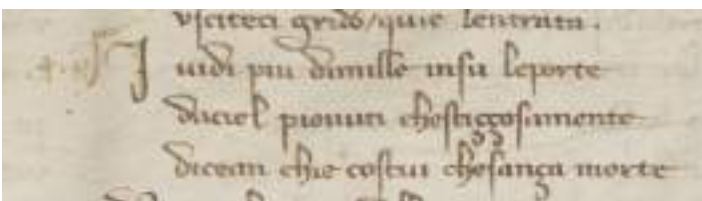 usciteci grido / quie lentrata.
I uidi piu dimille insu leporte
daciel piouuti chestizzosamente
dicean chie costui chesança morte